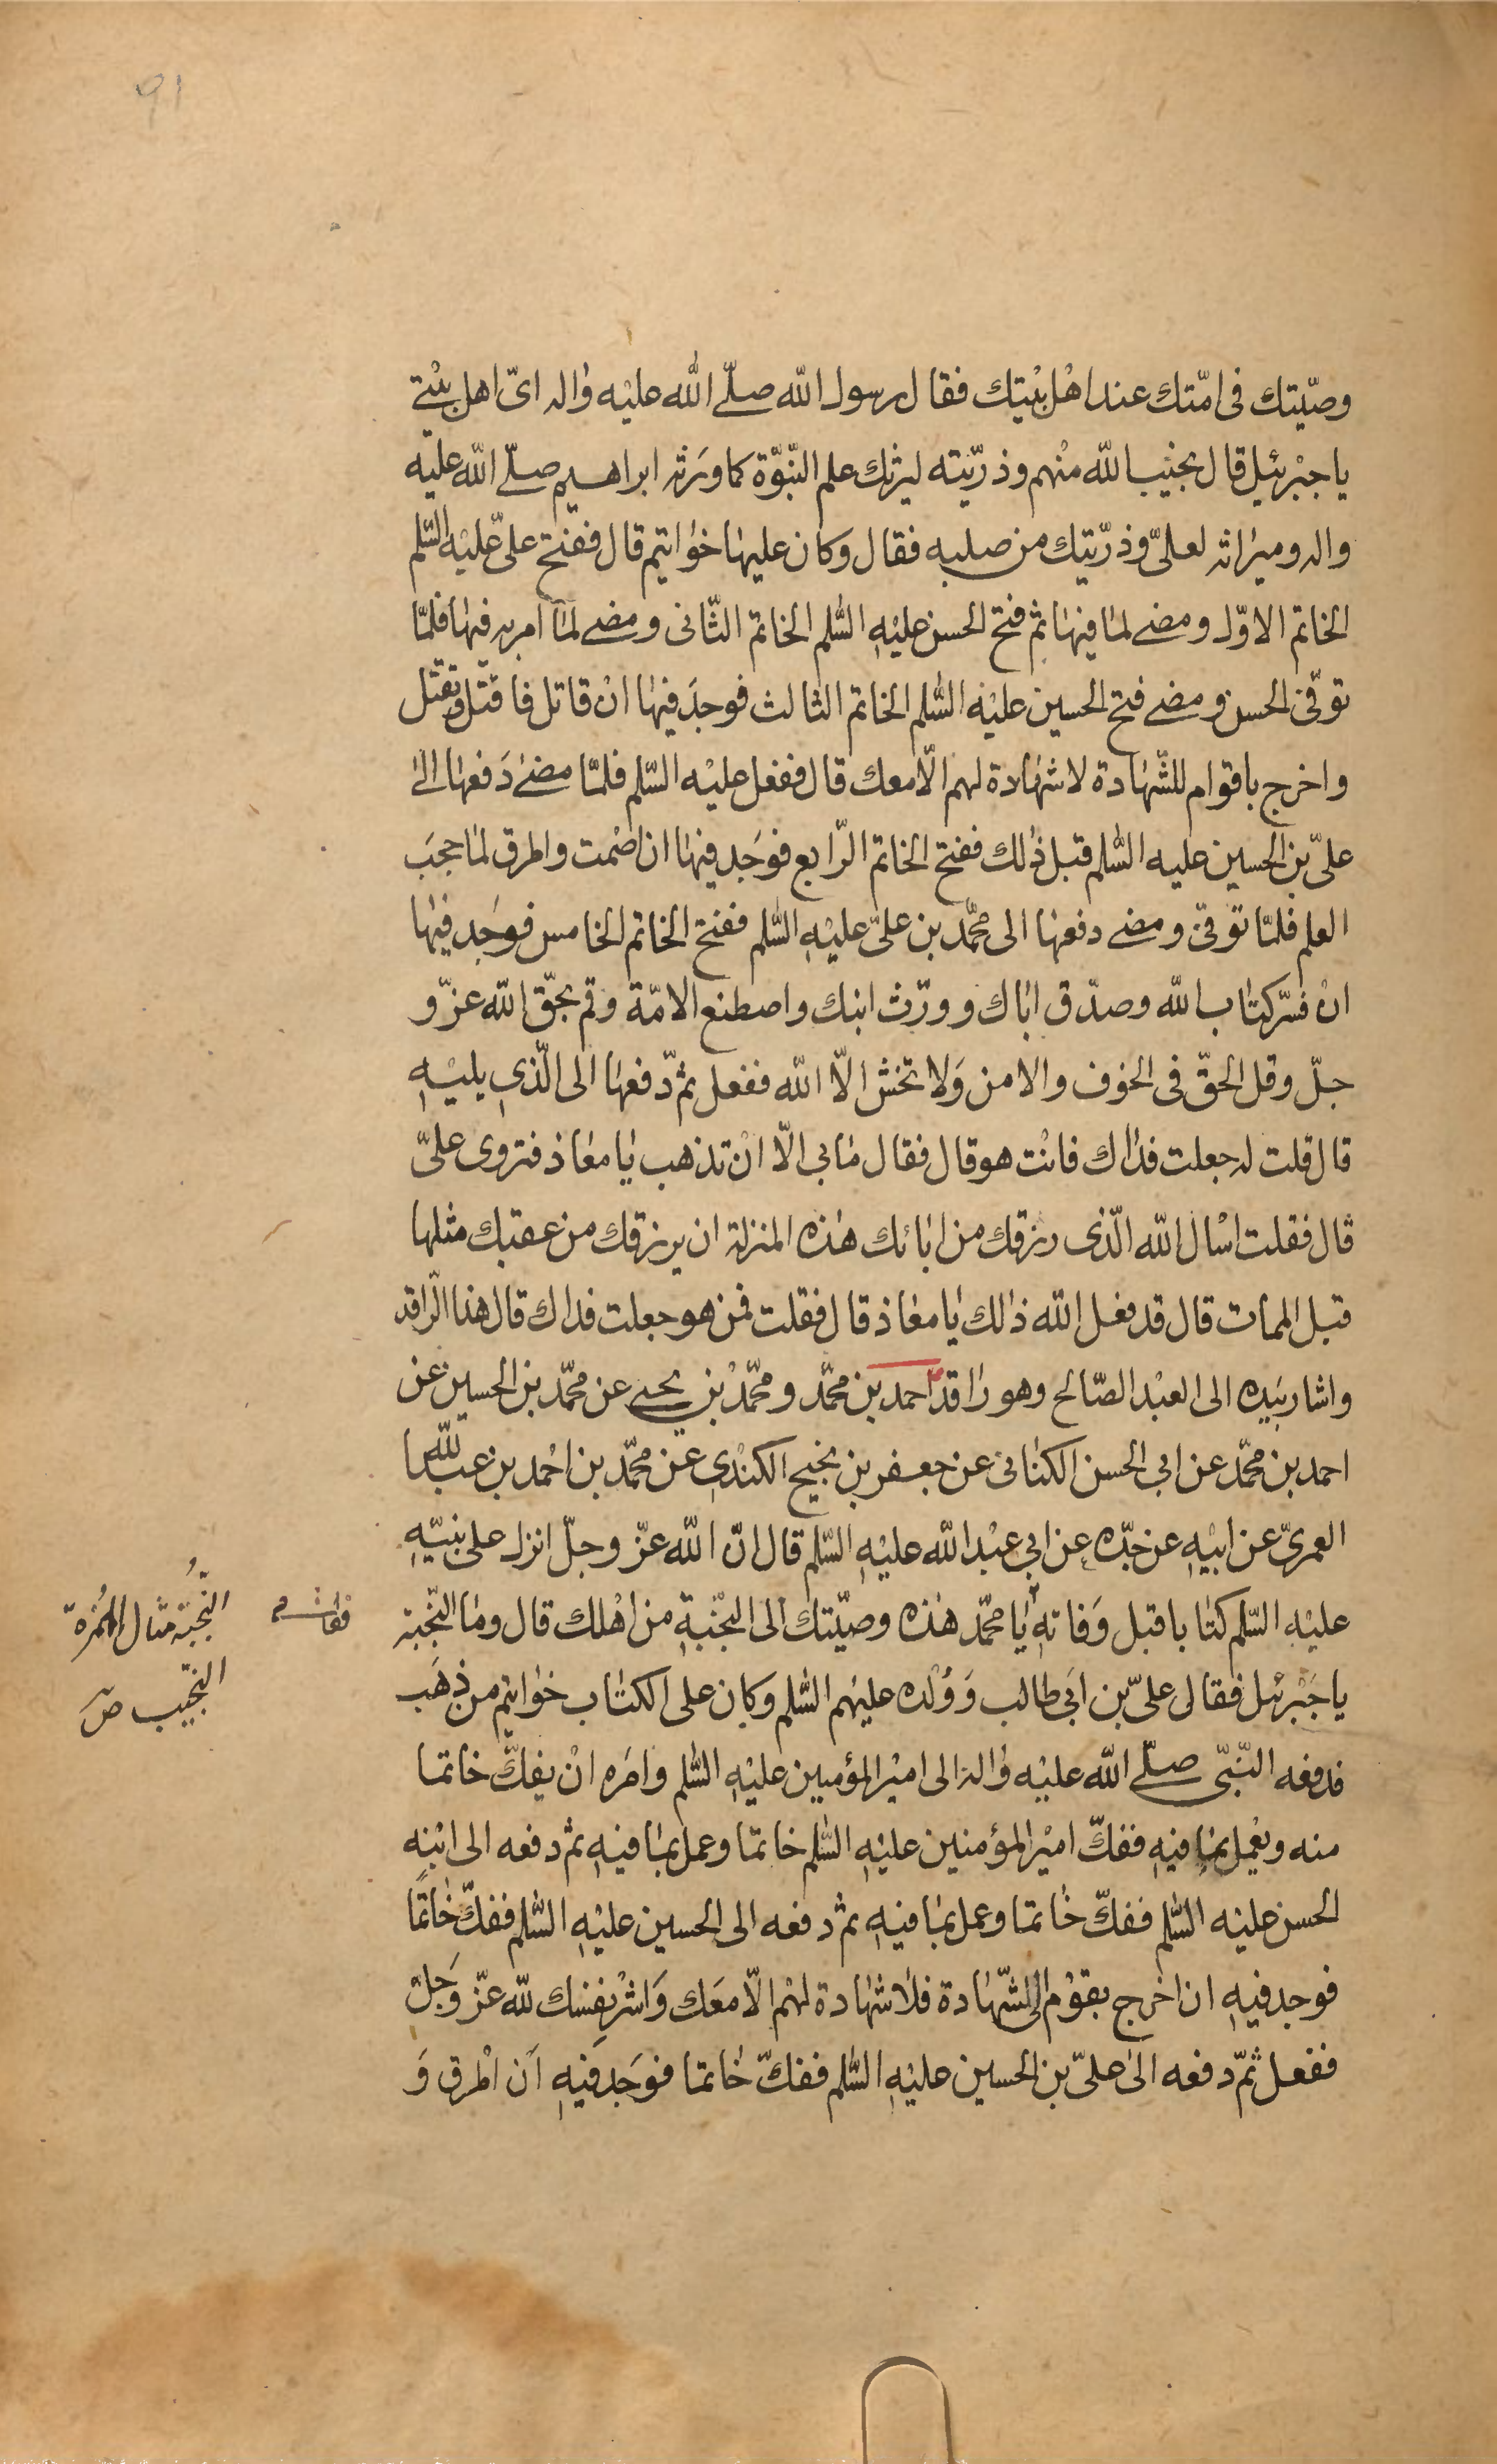 ٩١
وصيّتك فى امّتك عند اهْل بيْتك فقال رسول الله صلّے الله عليْه واٰله اىّ اهل بيْتے
يا جبْرئيل قال نجيْب الله منْهم وذرّيّته ليرثك علم النّبوّة كما ورَثه ابراهيم صلّے الله عليْه
واله وميراثه لعلىّ وذرّيّتك من صلبه فقال وكان عليها خواتيم قال ففتح علىّ عليْه السّلم
الخاتم الاوّل ومضے لما فيها ثم فتح الحسن عليْهِ السّلم الخاتم الثّانى ومضے لما امر به فيها فلمّا
توفّى الحسن ومضے فتح الحسين عليْه السّلم الخاتم الثالث فوجدَ فيها انْ قاتل فاقتل وتقتل
واخرج باقوام للشّهادة لا شهادة لهم الّا معك قال ففعل عليْه السّلم فلمّا مضےٰ دَفعها الىٰ
علىّ بن الحسين عليه السّلم قبل ذلك ففتح الخاتم الرّابع فوَجد فيها ان اصْمت واطرق لما حجبَ
العلم فلمّا توفّى ومضے دفعها الى محمّد بن علىّ عليْهِ السّلم ففتح الخاتم الخامس فوَجد فيها
انْ فسّر كتاب الله وصدّق اباك وورّث ابنك واصطنع الامّة وقم بحقّ الله عزّ و
جلّ وقل الحقّ فى الخوف والامن وَلا تخش الّا الله ففعل ثمّ دفعها الى الّذى يليْهِ
قال قلت له جعلت فداك فانْت هو قال فقال ما بى الّا انْ تذهب يا معاذ فتروى علىّ
قال فقلت اسْال الله الّذى رزقك من ابائك هٰذه المنزلة ان يرزقك من عقبك مثلها
قبل الممات قال قد فعل الله ذلك يا معاذ قال فقلت فمن هو جعلت فداك قال هذا الرّاقد
واشار بيَده الى العبْد الصّالح وهو راقد احمد بن محمّد ومحمّدْ بن يحيے عن محمّد بن الحسين عن
احمد بن محمّد عن ابى الحسن الكنانى عن جعفر بن نجيح الكنْدى عن محمّد بن احْمد بن عبيد الله
العمرىّ عن ابيْهِ عن جدّه عن ابى عبْد الله عليْهِ السّلم قال انّ الله عزّ وجلّ انزل على نبيّهِ
عليْهِ السّلم كتابا قبل وَفاتهِ يا محمّد هٰذه وصيّتك الى النّجْبةِ من اهْلك قال وما النّجْبة
يا جَبْرئيل فقال علىّ بن ابى طالب وَوُلْده عليْهم السّلم وكان على الكتاب خواتيم من ذهَب
فدفعه النّبىّ صلّے الله عليْه واٰله الى اميْر المؤمنين عليْهِ السّلم وامَره انْ يفكّ خاتما
منه ويعْمل بما فيهِ ففكّ اميْر المؤمنين عليْهِ السّلم خاتما وعمل بما فيهِ ثم دفعه الى ابْنهِ
الحسن عليْه السّلم ففكّ خاتما وعمل بما فيهِ ثم دفعه الى الحسين عليْهِ السّلم ففكّ خاتمًا
فوجد فيهِ ان اخرج بقوْم الى الشّهادة فلا شهادة لهْم الّا معَك وَاشْر نفسك لله عزّ وَجلّ
ففعل ثمّ دفعه الىٰ علىّ بن الحسين عليْهِ السّلم ففكّ خاتما فوَجد فيهِ اَن اطْرق وَ
فقال
النُّجَبَة مثال الهُمَزة
النجيب ص